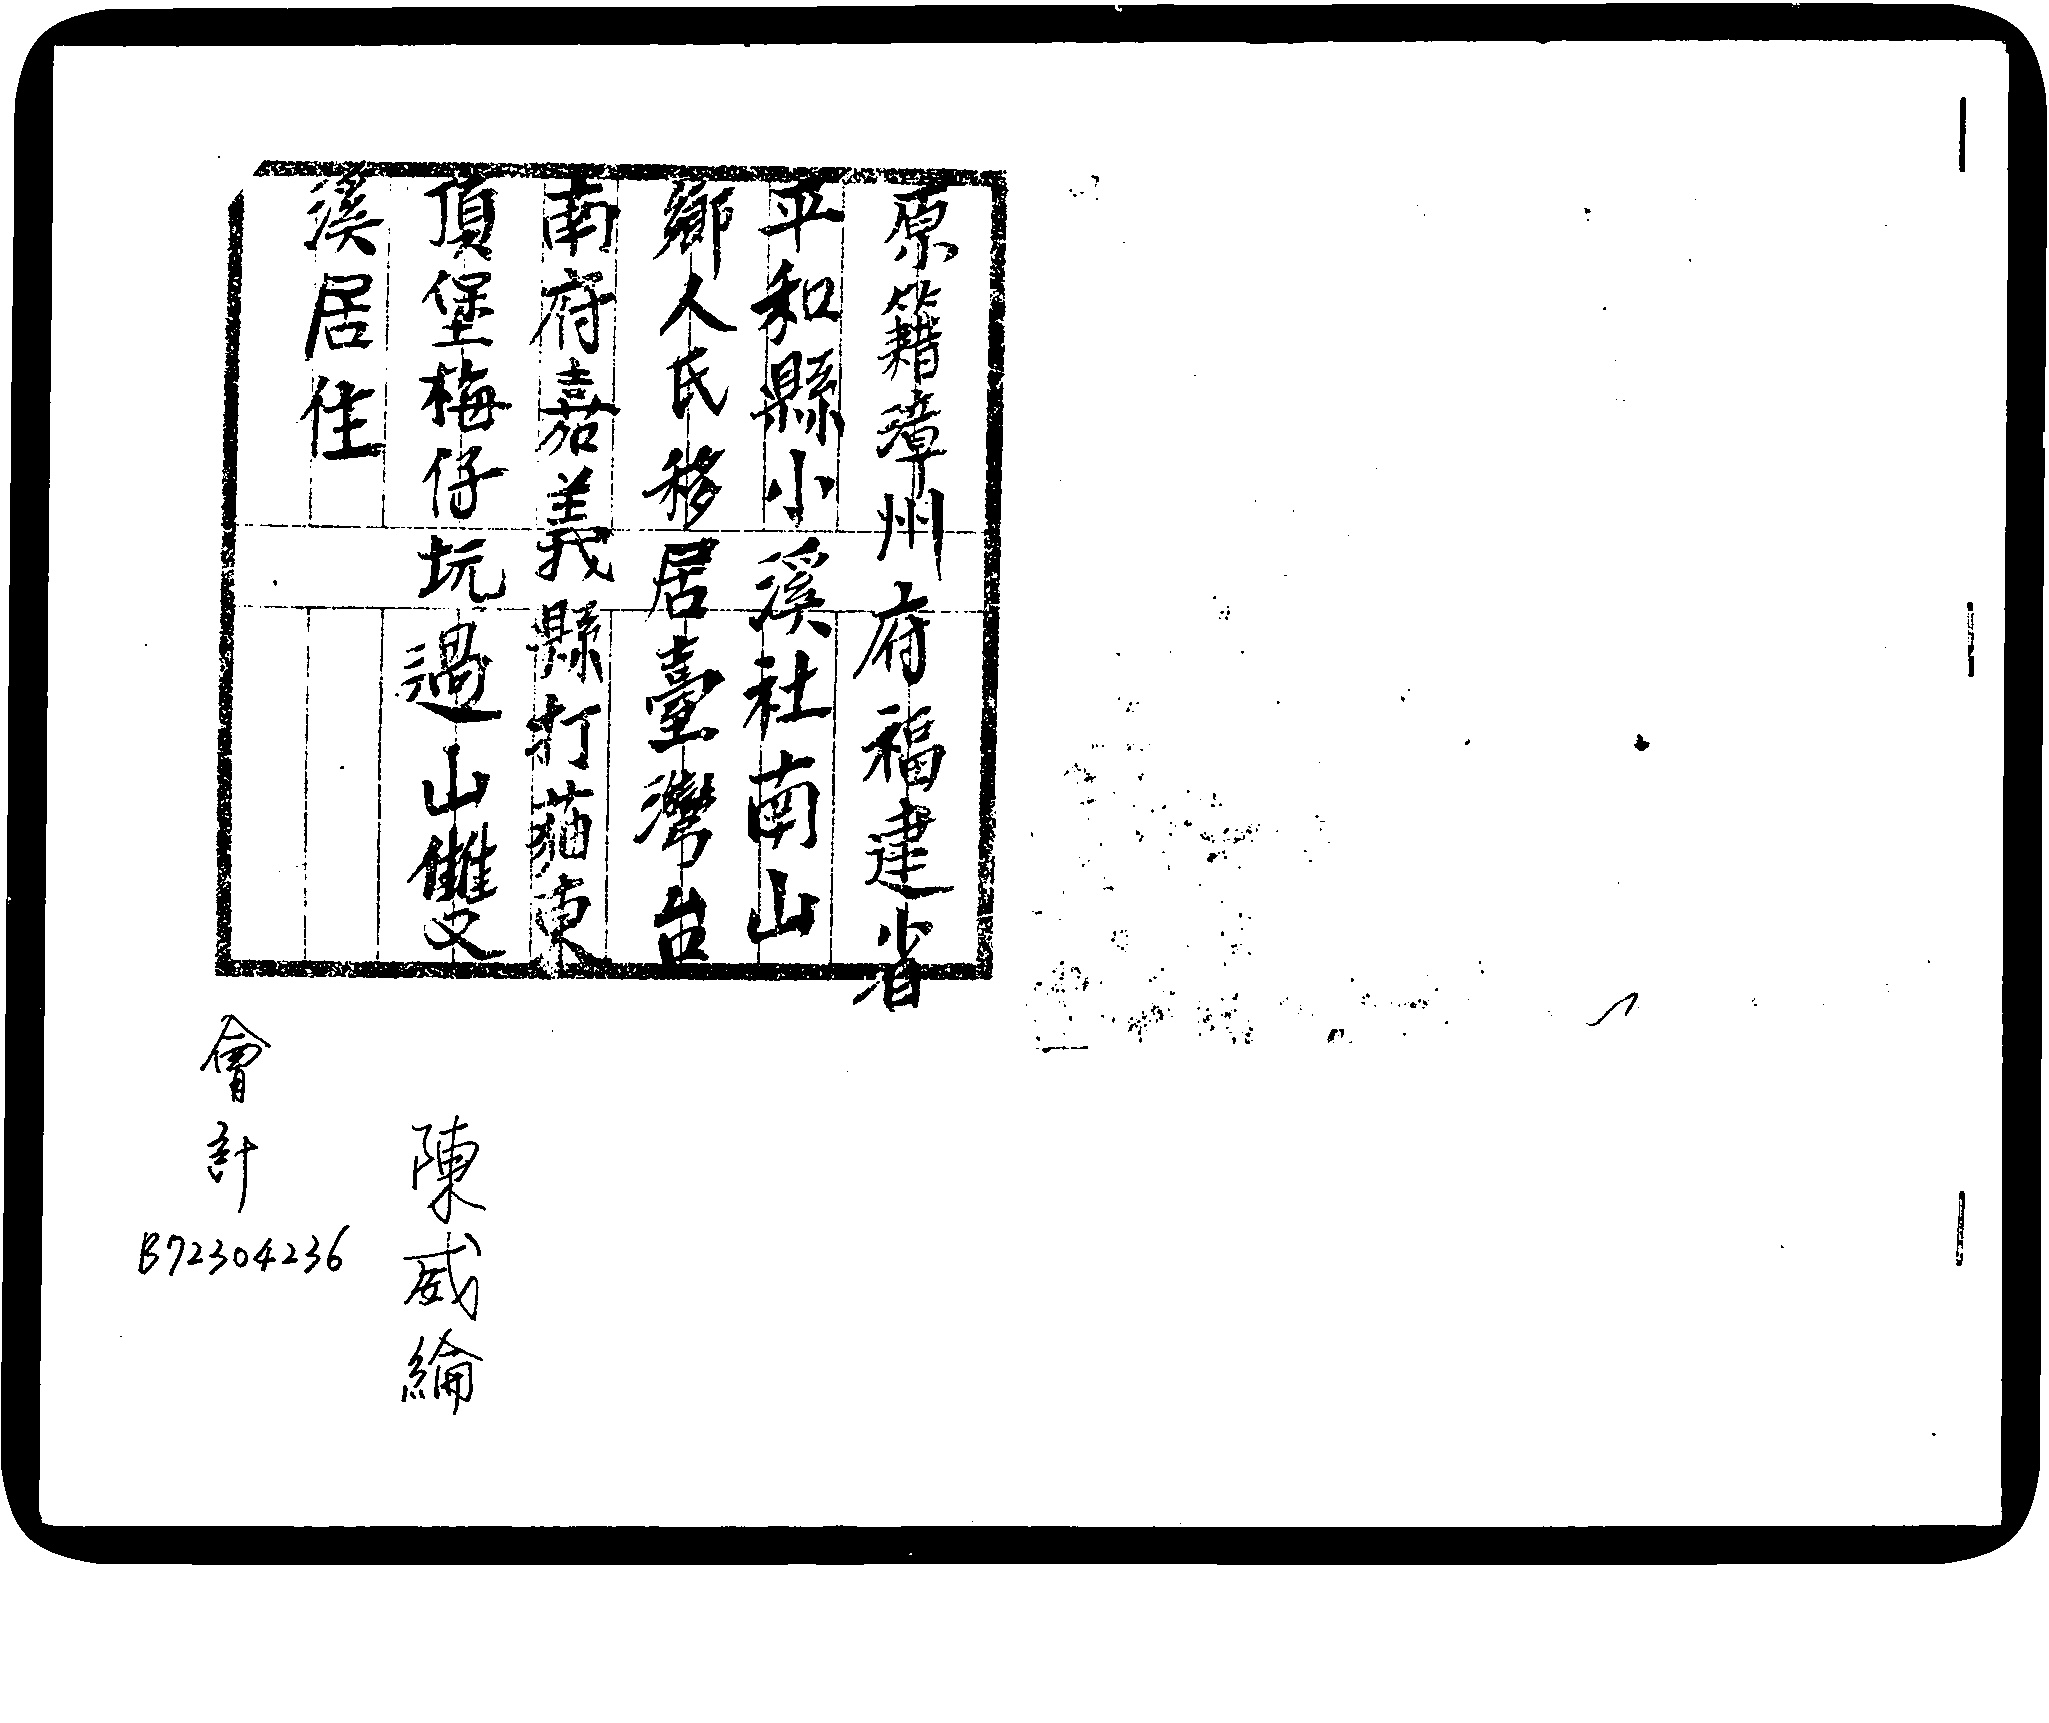 原籍漳州府福建省
平和縣小溪社南山
鄉人民移居臺灣台
南府嘉義縣打猫東
頂堡梅仔坑過山雙
溪居住
陳威綸
會計
B72304236